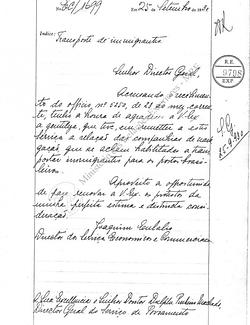 No EC/1699
Em 25 de Setembro de 192
Indice: Transporte de immigrantes
Senhor Director Geral,
Accusando o recebimen-
to do officio, nº 5250, de 23 do mez corren-
te, tenho a honra de agradecer a V. Ex.
a gentileza, que teve, em remetter a este
serviço a relação das companhias de nave-
gação que se acham habilitadas a trans-
portar immigrantes para os portos brasi-
leiros.
Aproveito a opportunidade
de para renovar a V. Ex. os protestos da
minha perfeita estima e distincta consi-
deração.
Joaquim Eulalio
Director do Serviço Economico e Commercial
A Sua Excellencia o Senhor Doutor Dulphe Pinheiro Machado,
Director Geral do Serviço de Povoamento
R. E.
9798
EXP.